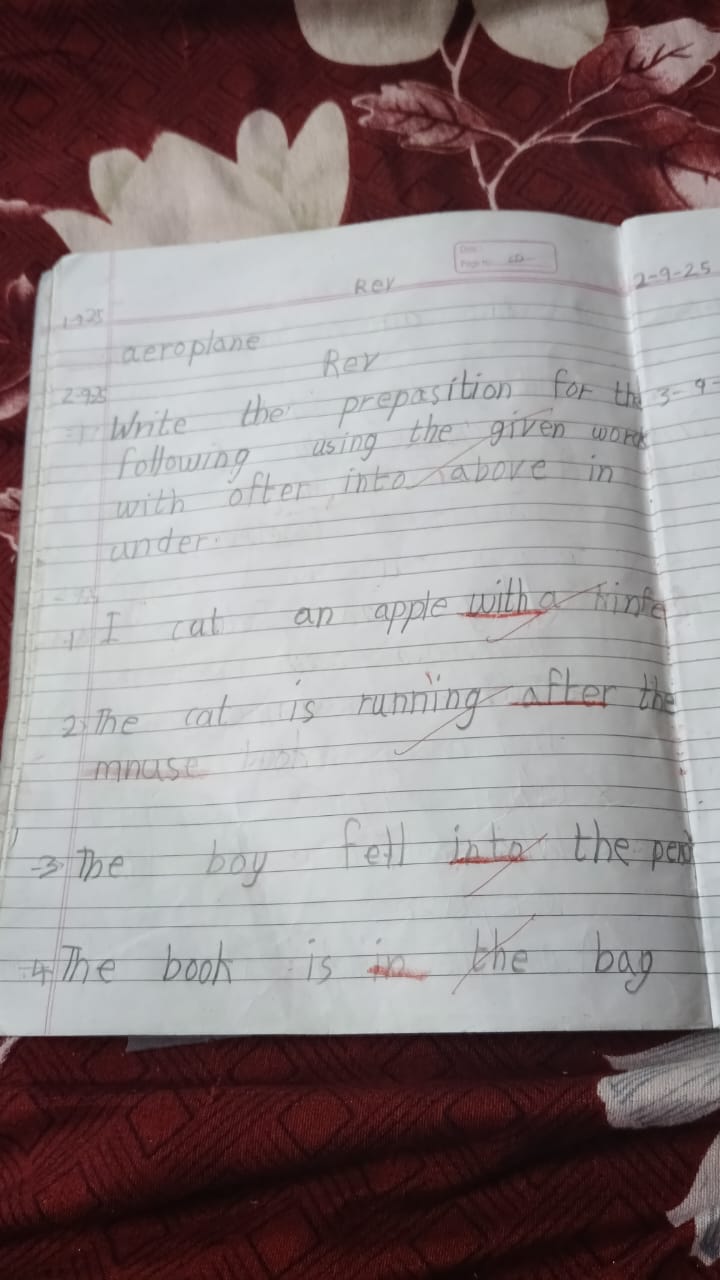 Date
Page No.
Rev
2-9-25
1-9-25
aeroplane
Rev
2-9-25
Write the preposition for the
3-9-
following using the given words
with ofter into above in
under.
1 I cat an apple with a kinfe
2 The cat is running after the
mouse
3 The boy fell into the
4 The book is in the bag